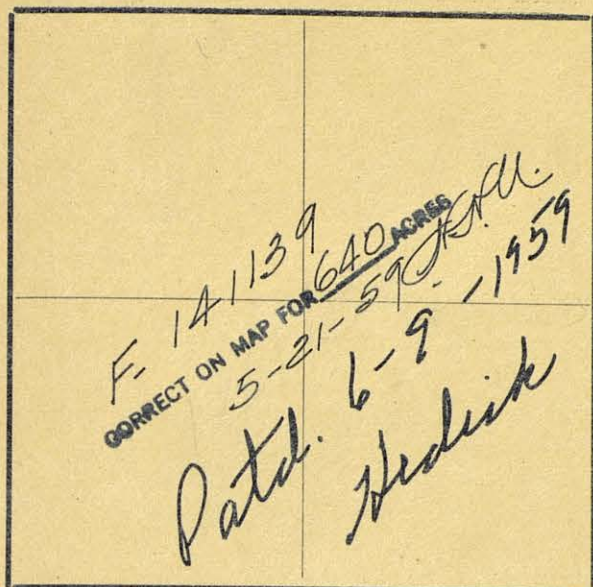 F. 141139
CORRECT ON MAP FOR 640 ACRES
5-21-59
Patd. 6-9-1959
Hedick